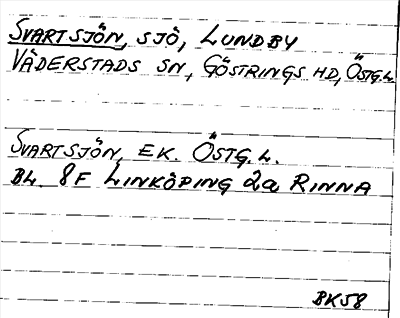 SVARTSJÖN, SJÖ, LUNDBY
VÄDERSTADS SN, GÖSTRINGS HD, ÖSTG.L.
SVARTSJÖN, EK. ÖSTG.L.
BL. 8F LINKÖPING 2a RINNA
BK58